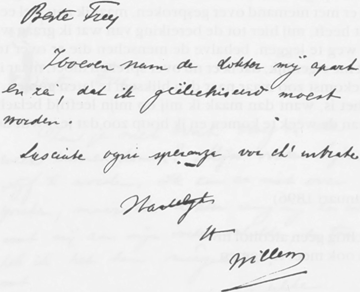 Beste Trees
Zooeven nam de dokter mij apart
en zei, dat ik geëlectriseerd moest
worden.
Lasciate ogni speranza voi ch' entrate
Hartelijk
tt
Willem